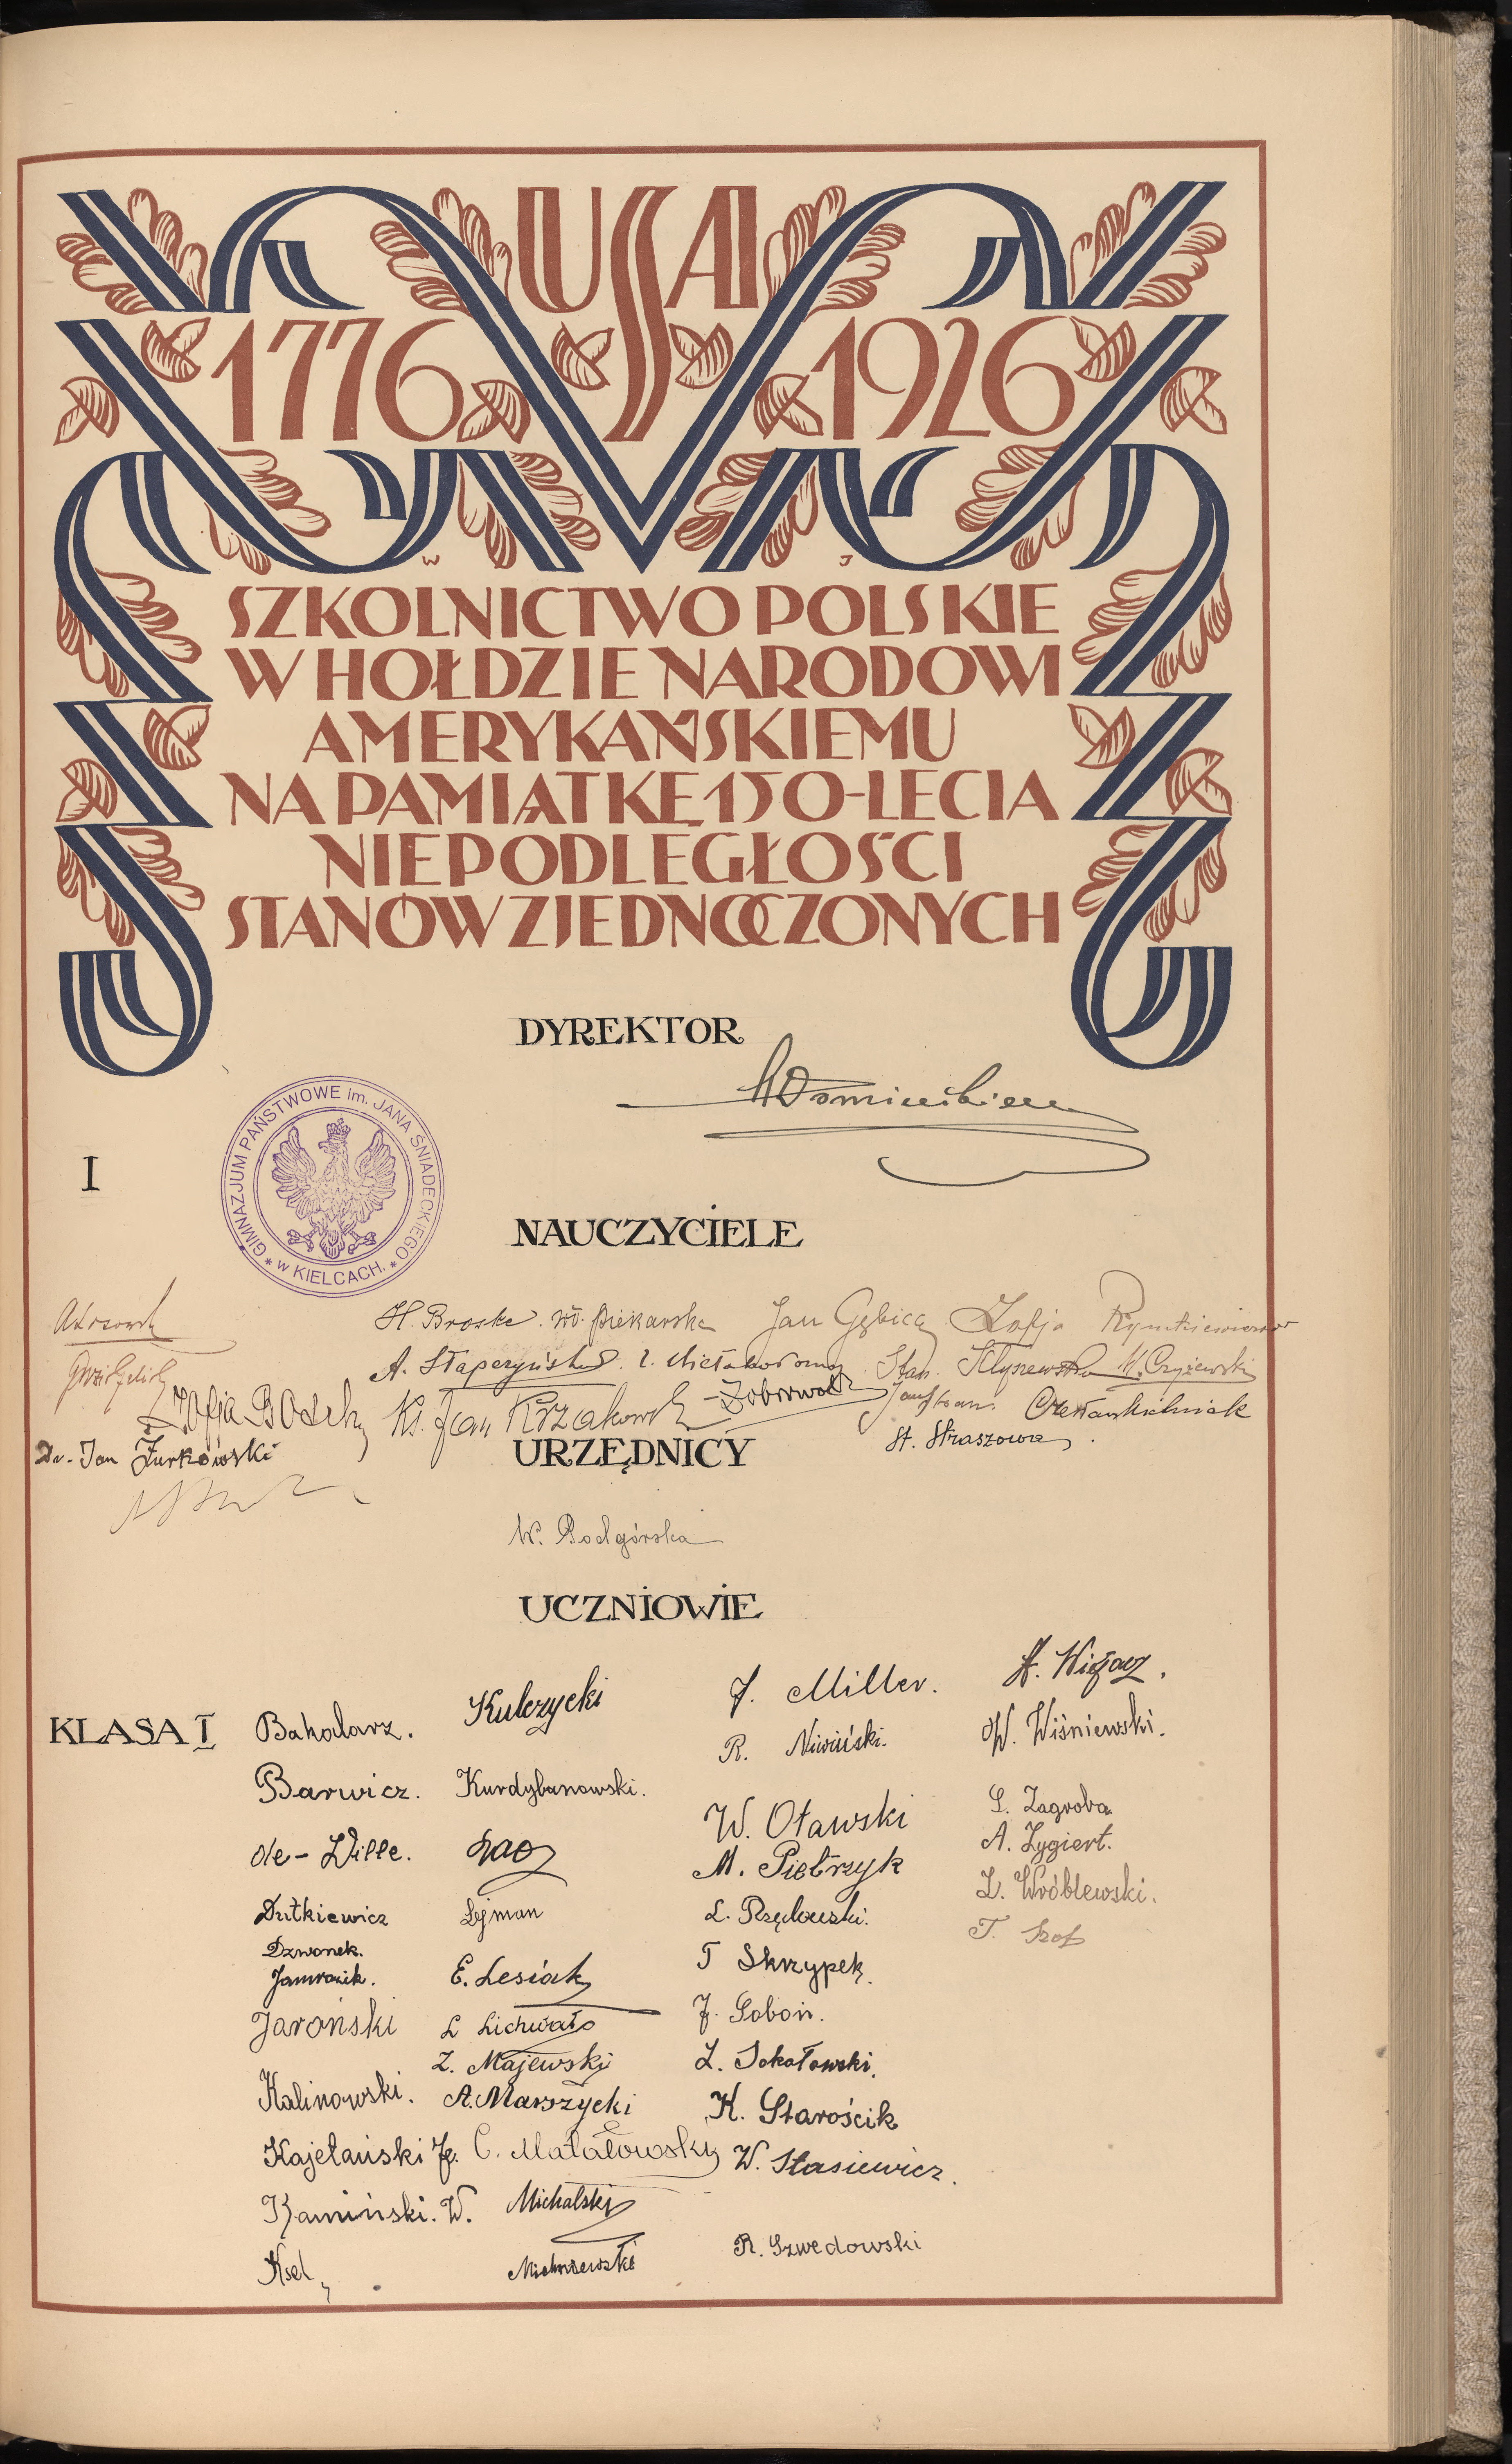 USA
1776 1926
W J
SZKOLNICTWO POLSKIE
W HOŁDZIE NARODOWI
AMERYKAŃSKIEMU
NA PAMIĄTKĘ 150-LECIA
NIEPODLEGŁOŚCI
STANÓW ZJEDNOCZONYCH
DYREKTOR
I
GIMNAZJUM PAŃSTWOWE im. JANA ŚNIADECKIEGO
* w KIELCACH. *
NAUCZYCIELE
H. Broske. Wł. Piekarska Jan Gębica Zofja Rymkiewiczowa
A. Stapczyński Stan. M. Czyżewski
Zofja Ks. Jan Krzakowski
Dr. Jan Żurkowski
St. Straszowa
URZĘDNICY
W. Podgórska
UCZNIOWIE
KLASA I
Bahodarz.
Barwicz.
de-Wille.
Dutkiewicz
Dzwonek.
Jamrozik.
Jaroński
Kalinowski.
Kajetański J.
Kamiński. W.
Ksel
Kulczycki
Kurdybanowski.
Lejman
E. Lesiak
L Lichwało
Z. Majewski
A. Marszycki
C. Matałowski
Michalski
J. Miller.
R. Niwiński.
W. Oławski
M. Pietrzyk
L. Rzędowski.
T Skrzypek.
J. Soboń.
L. Sokołowski.
K. Starościk
W. Stasiewicz.
R. Szwedowski
W. Wiśniewski.
S. Zagroba
A. Zygiert.
Z. Wróblewski.